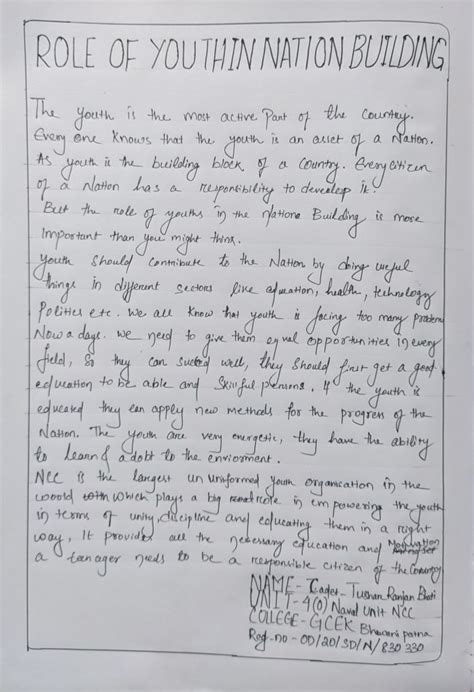 ROLE OF YOUTH IN NATION BUILDING
The youth is the most active Part of the Country.
Every one knows that the youth is an asset of a Nation.
As youth is the building block of a Country. Every citizen
of a Nation has a responsibility to develop it.
But the role of youths in the nations Building is more
Important than you might think.
Youth Should contribute to the Nation by doing useful
things in different Sectors like education, health, technology
Politics etc. We all know that youth is facing too many problems
Now a days. We need to give them equal opportunities in every
field, so they can succed well, they should first get a good
education to be able and Skillful persons. If the youth is
educated they can apply new methods for the progress of the
Nation. The youth are very energetic, they have the ability
to learn & adobt to the enviorment.
NCC is the largest un uniformed youth organisation in the
woorld which plays a big role in empowering the youth
in terms of unity, discipline and educating them in a right
way, It provides all the necessary education and Motivation
a teenager needs to be a responsible citizen of the Country
NAME - Cadet - Tushar Ranjan Bhoti
UNIT - 4(O) Naval Unit NCC
COLLEGE - GCEK Bhawanipatna
Reg-no - OD/20/SD/N/830 330